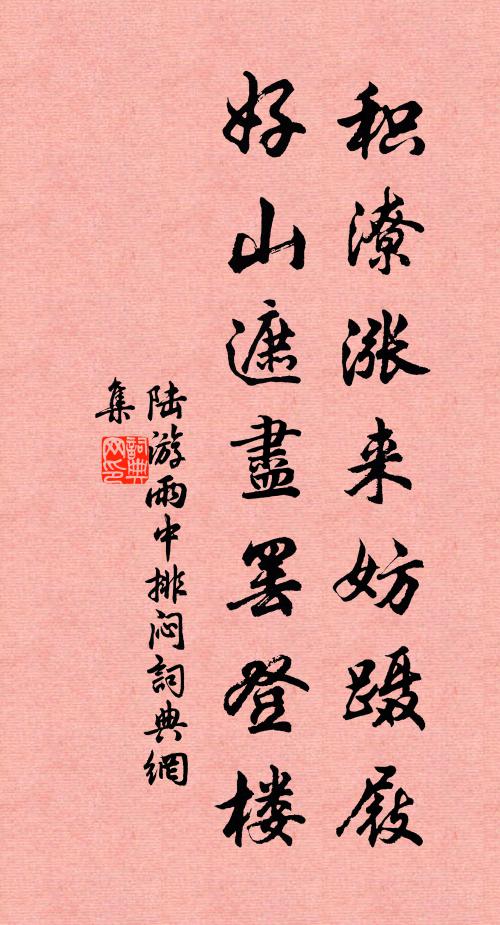 积潦涨来妨蹑屐
好山遮盡罢登楼
陆游雨中排闷詞典網
集
詞典网印